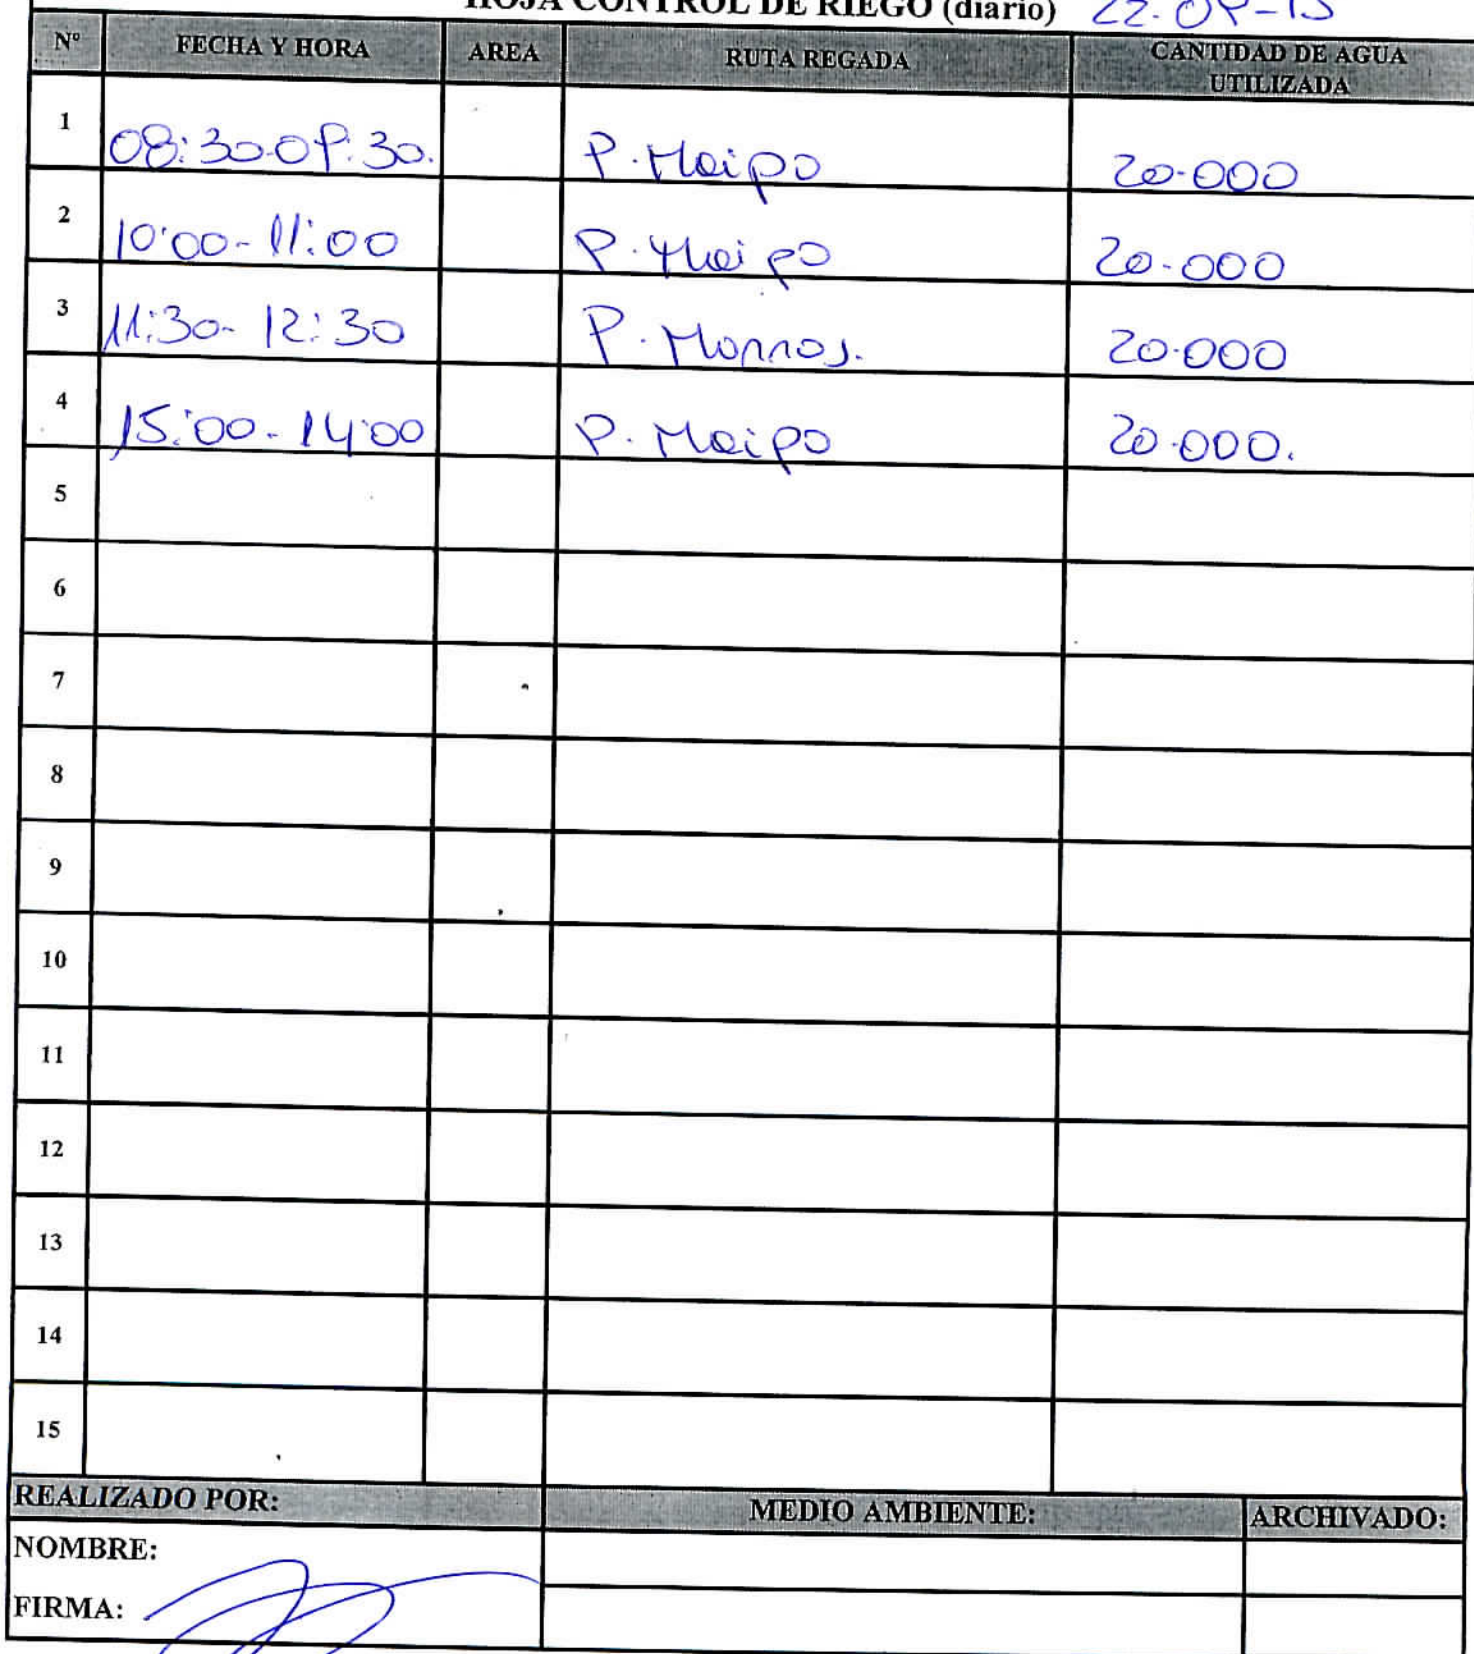 HOJA CONTROL DE RIEGO (diario) 22-09-15
Nº FECHA Y HORA AREA RUTA REGADA CANTIDAD DE AGUA UTILIZADA
1 08:30-09:30. P. Maipo 20.000
2 10:00-11:00 P. Maipo 20.000
3 11:30-12:30 P. Morros. 20.000
4 15:00-14:00 P. Maipo 20.000.
5
6
7
8
9
10
11
12
13
14
15
REALIZADO POR: MEDIO AMBIENTE: ARCHIVADO:
NOMBRE:
FIRMA: